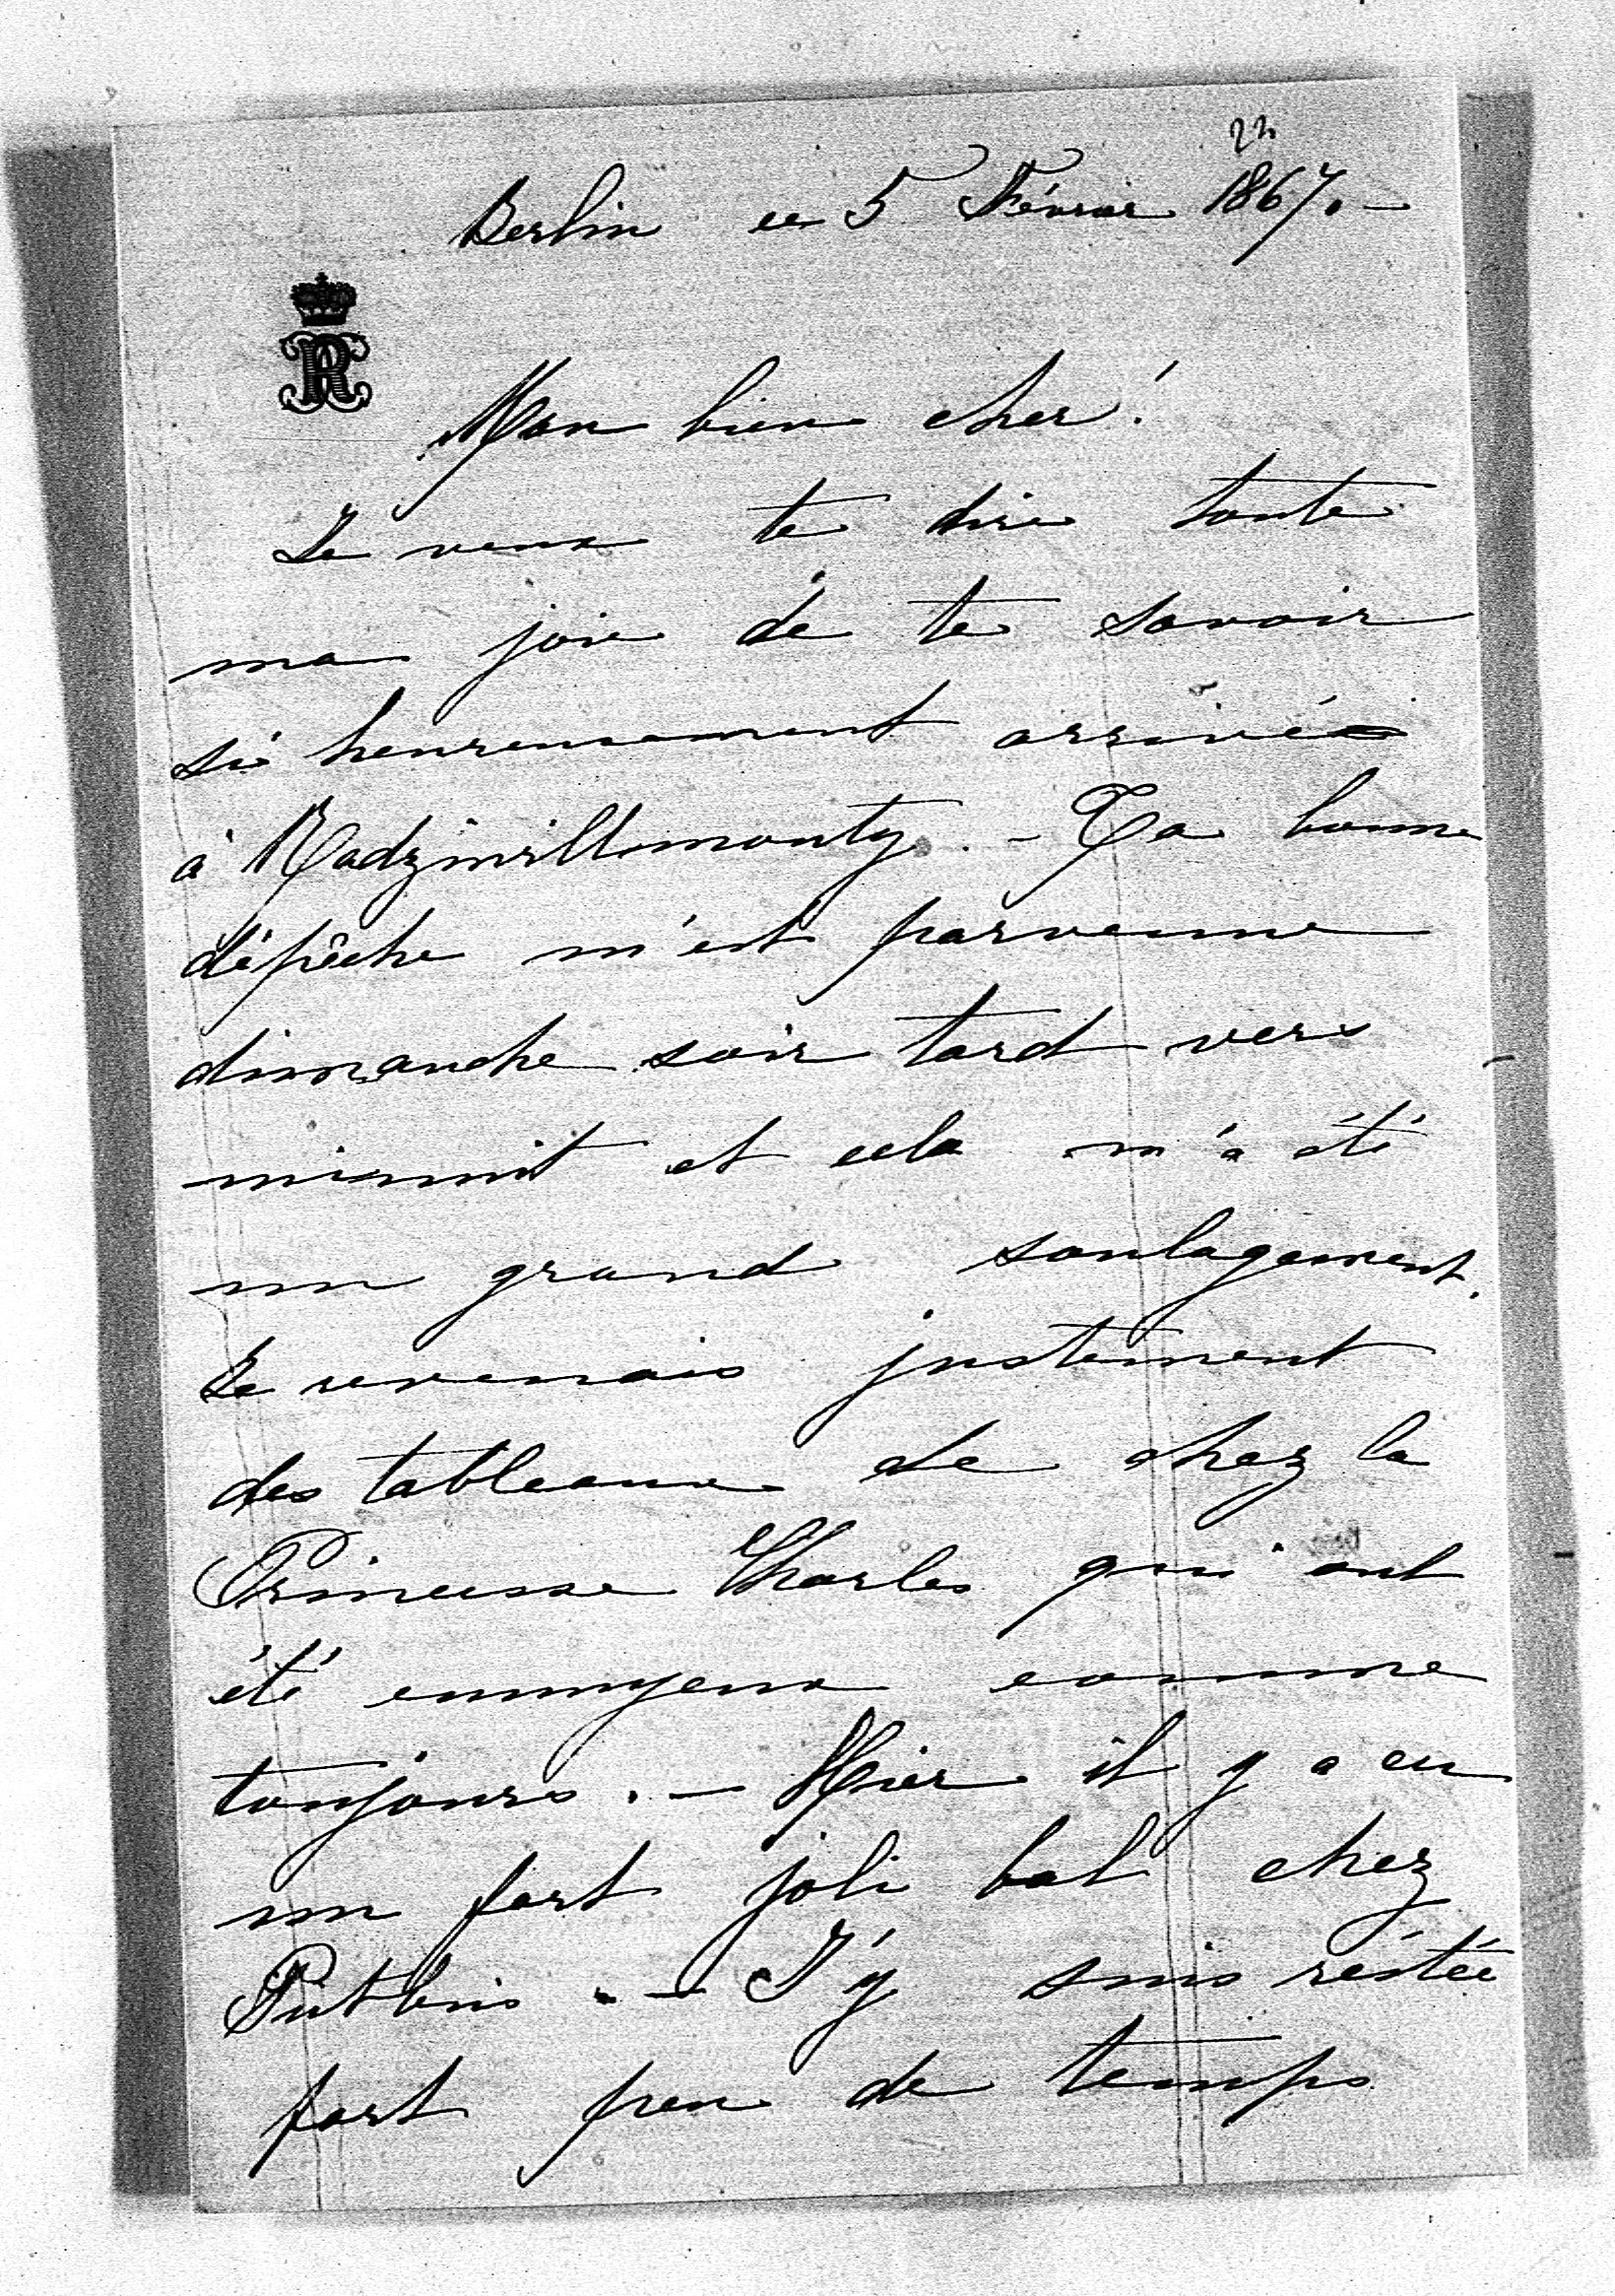 22
Berlin ce 5 Février 1867. –
Mon bien cher!
Je veux te dire toute
ma joie de te savoir
si heureusement arrivé
à Radziwillmonty. – Ta bonne
dépêche m'est parvenue
dimanche soir tard vers
minuit et cela m'a été
un grand soulagement.
Je revenais justement
des tableaux de chez la
Princesse Charles qui ont
été ennuyeux comme
toujours. – Hier il y a eu
un fort joli bal chez
Putbus. – J'y suis réstée
fort peu de temps